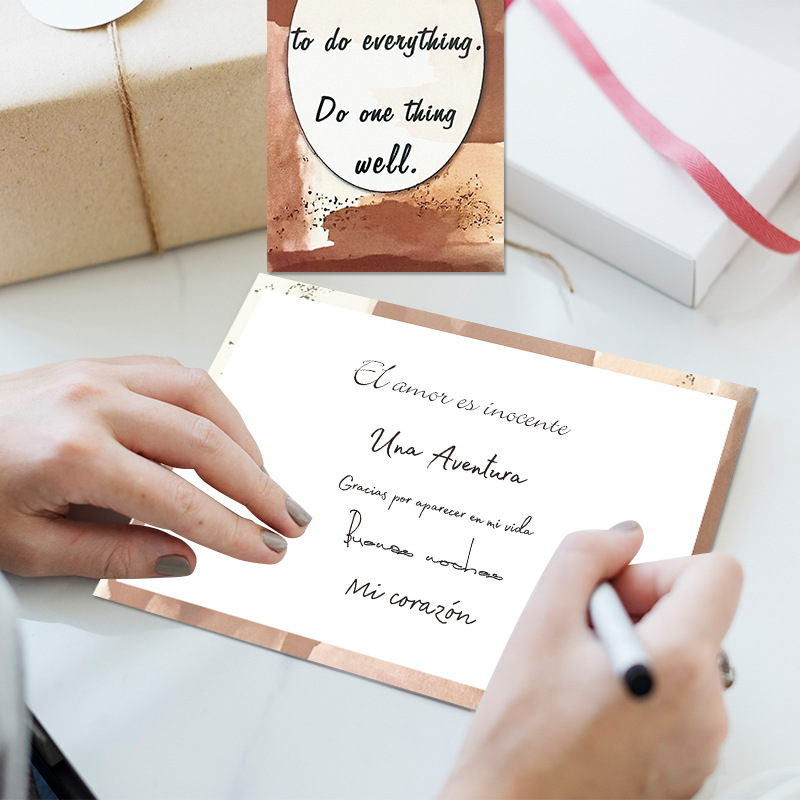 to do everything.
Do one thing
well.
El amor es inocente
Una Aventura
Gracias por aparecer en mi vida
Buenas noches
Mi corazón